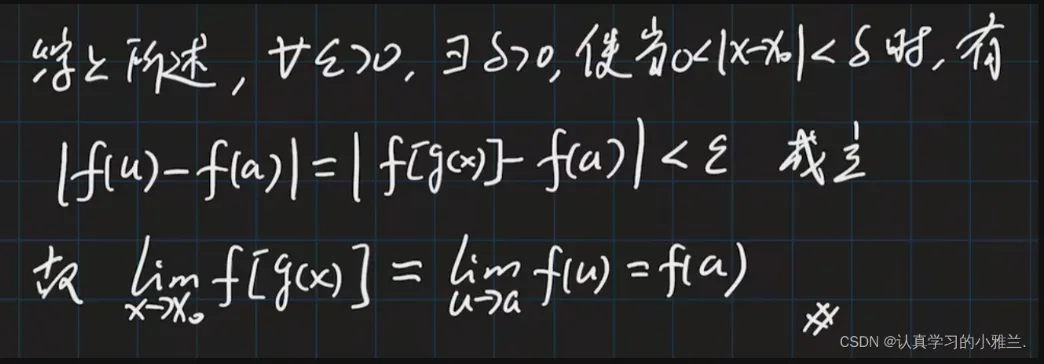 综上所述, ∀ε>0, ∃δ>0, 使当0<|x-x₀|<δ时, 有
|f(u)-f(a)|=|f[g(x)]-f(a)|<ε 成立
故 lim_{x→x₀} f[g(x)] = lim_{u→a} f(u) = f(a)
#
CSDN @认真学习的小雅兰.